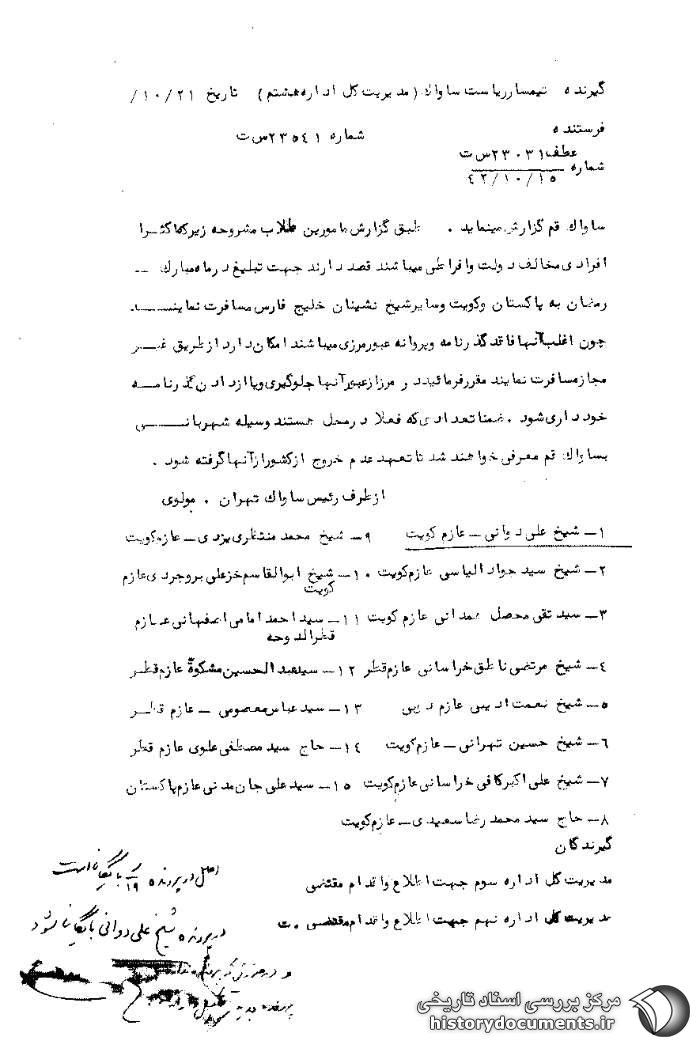 گیرنده تیمسار ریاست ساواک (مدیریت کل اداره هشتم) تاریخ ۱۰/۲۱/
فرستنده شماره ۲۳۵۴۱ س ت
عطف ۲۳۰۳۱ س ت
شماره ۴۲/۱۰/۱۵
ساواک قم گزارش مینماید . طبق گزارش مامورین طلاب مشروحه زیر که اکثـرا
افرادی مخالف دولت وافراطی میباشند قصد دارند جهت تبلیغ در ماه مبارک --
رمضان به پاکستان وکویت وسایر شیخ نشینان خلیج فارس مسافرت نماینـــد
چون اغلب آنها فاقد گذرنامه و پروانه عبور مرزی میباشند امکان دارد از طریق غیـر
مجاز مسافرت نمایند مقرر فرمائید در مرز از عبور آنها جلوگیری ویا از دادن گذرنامـه
خودداری شود . ضمنا تعدادی که فعلا در محل هستند وسیله شهربانـــی
بساواک قم معرفی خواهند شد تا تعهد عدم خروج از کشور از آنها گرفته شود .
از طرف رئیس ساواک تهران . مولوی
۱- شیخ علی دوانی - عازم کویت ۹- شیخ محمد منتظری یزدی - عازم کویت
۲- شیخ سید جواد الیاسی عازم کویت ۱۰- شیخ ابوالقاسم خزعلی بروجردی عازم
کویت
۳- سید تقی محصل همدانی عازم کویت ۱۱- سید احمد امامی اصفهانی عـازم
قطر الدوحه
۴- شیخ مرتضی ناطق خراسانی عازم قطر ۱۲- سید عبدالحسین مشکوة عازم قطر
۵- شیخ نعمت ادیبی عازم دبی ۱۳- سید عباس معصومی - عازم قطـر
۶- شیخ حسین تهرانی - عازم کویت ۱۴- حاج سید مصطفی علوی عازم قطر
۷- شیخ علی اکبر کافی خراسانی عازم کویت ۱۵- سید علی جان مدنی عازم پاکستان
۸- حاج سید محمد رضا سعیدی - عازم کویت
گیرندگان
مدیریت کل اداره سوم جهت اطلاع واقدام مقتضی
مدیریت کل اداره نهم جهت اطلاع واقدام مقتضی . ت
اصل در پرونده بایگانی است
در پرونده شیخ علی دوانی بایگانی شود
مرکز بررسی اسناد تاریخی
historydocuments.ir